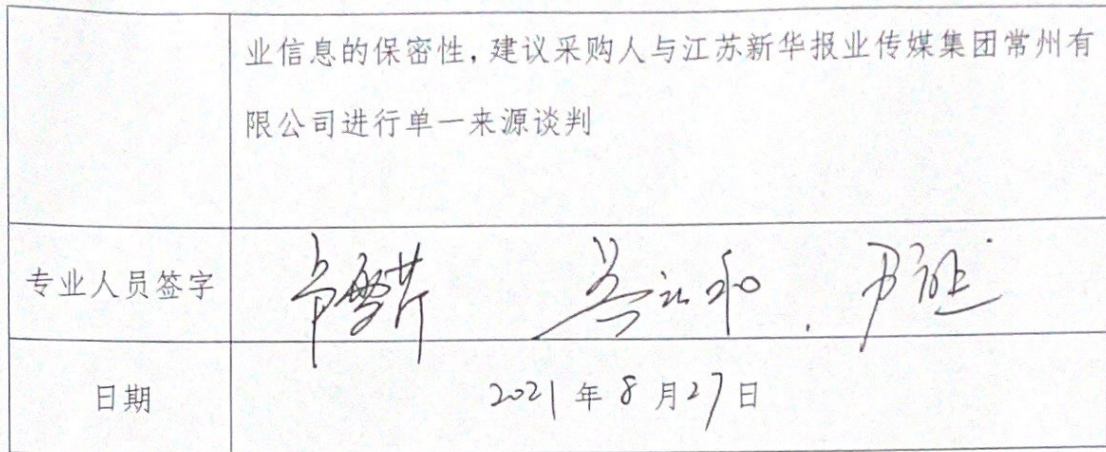 业信息的保密性，建议采购人与江苏新华报业传媒集团常州有
限公司进行单一来源谈判
专业人员签字
日期 2021年8月27日